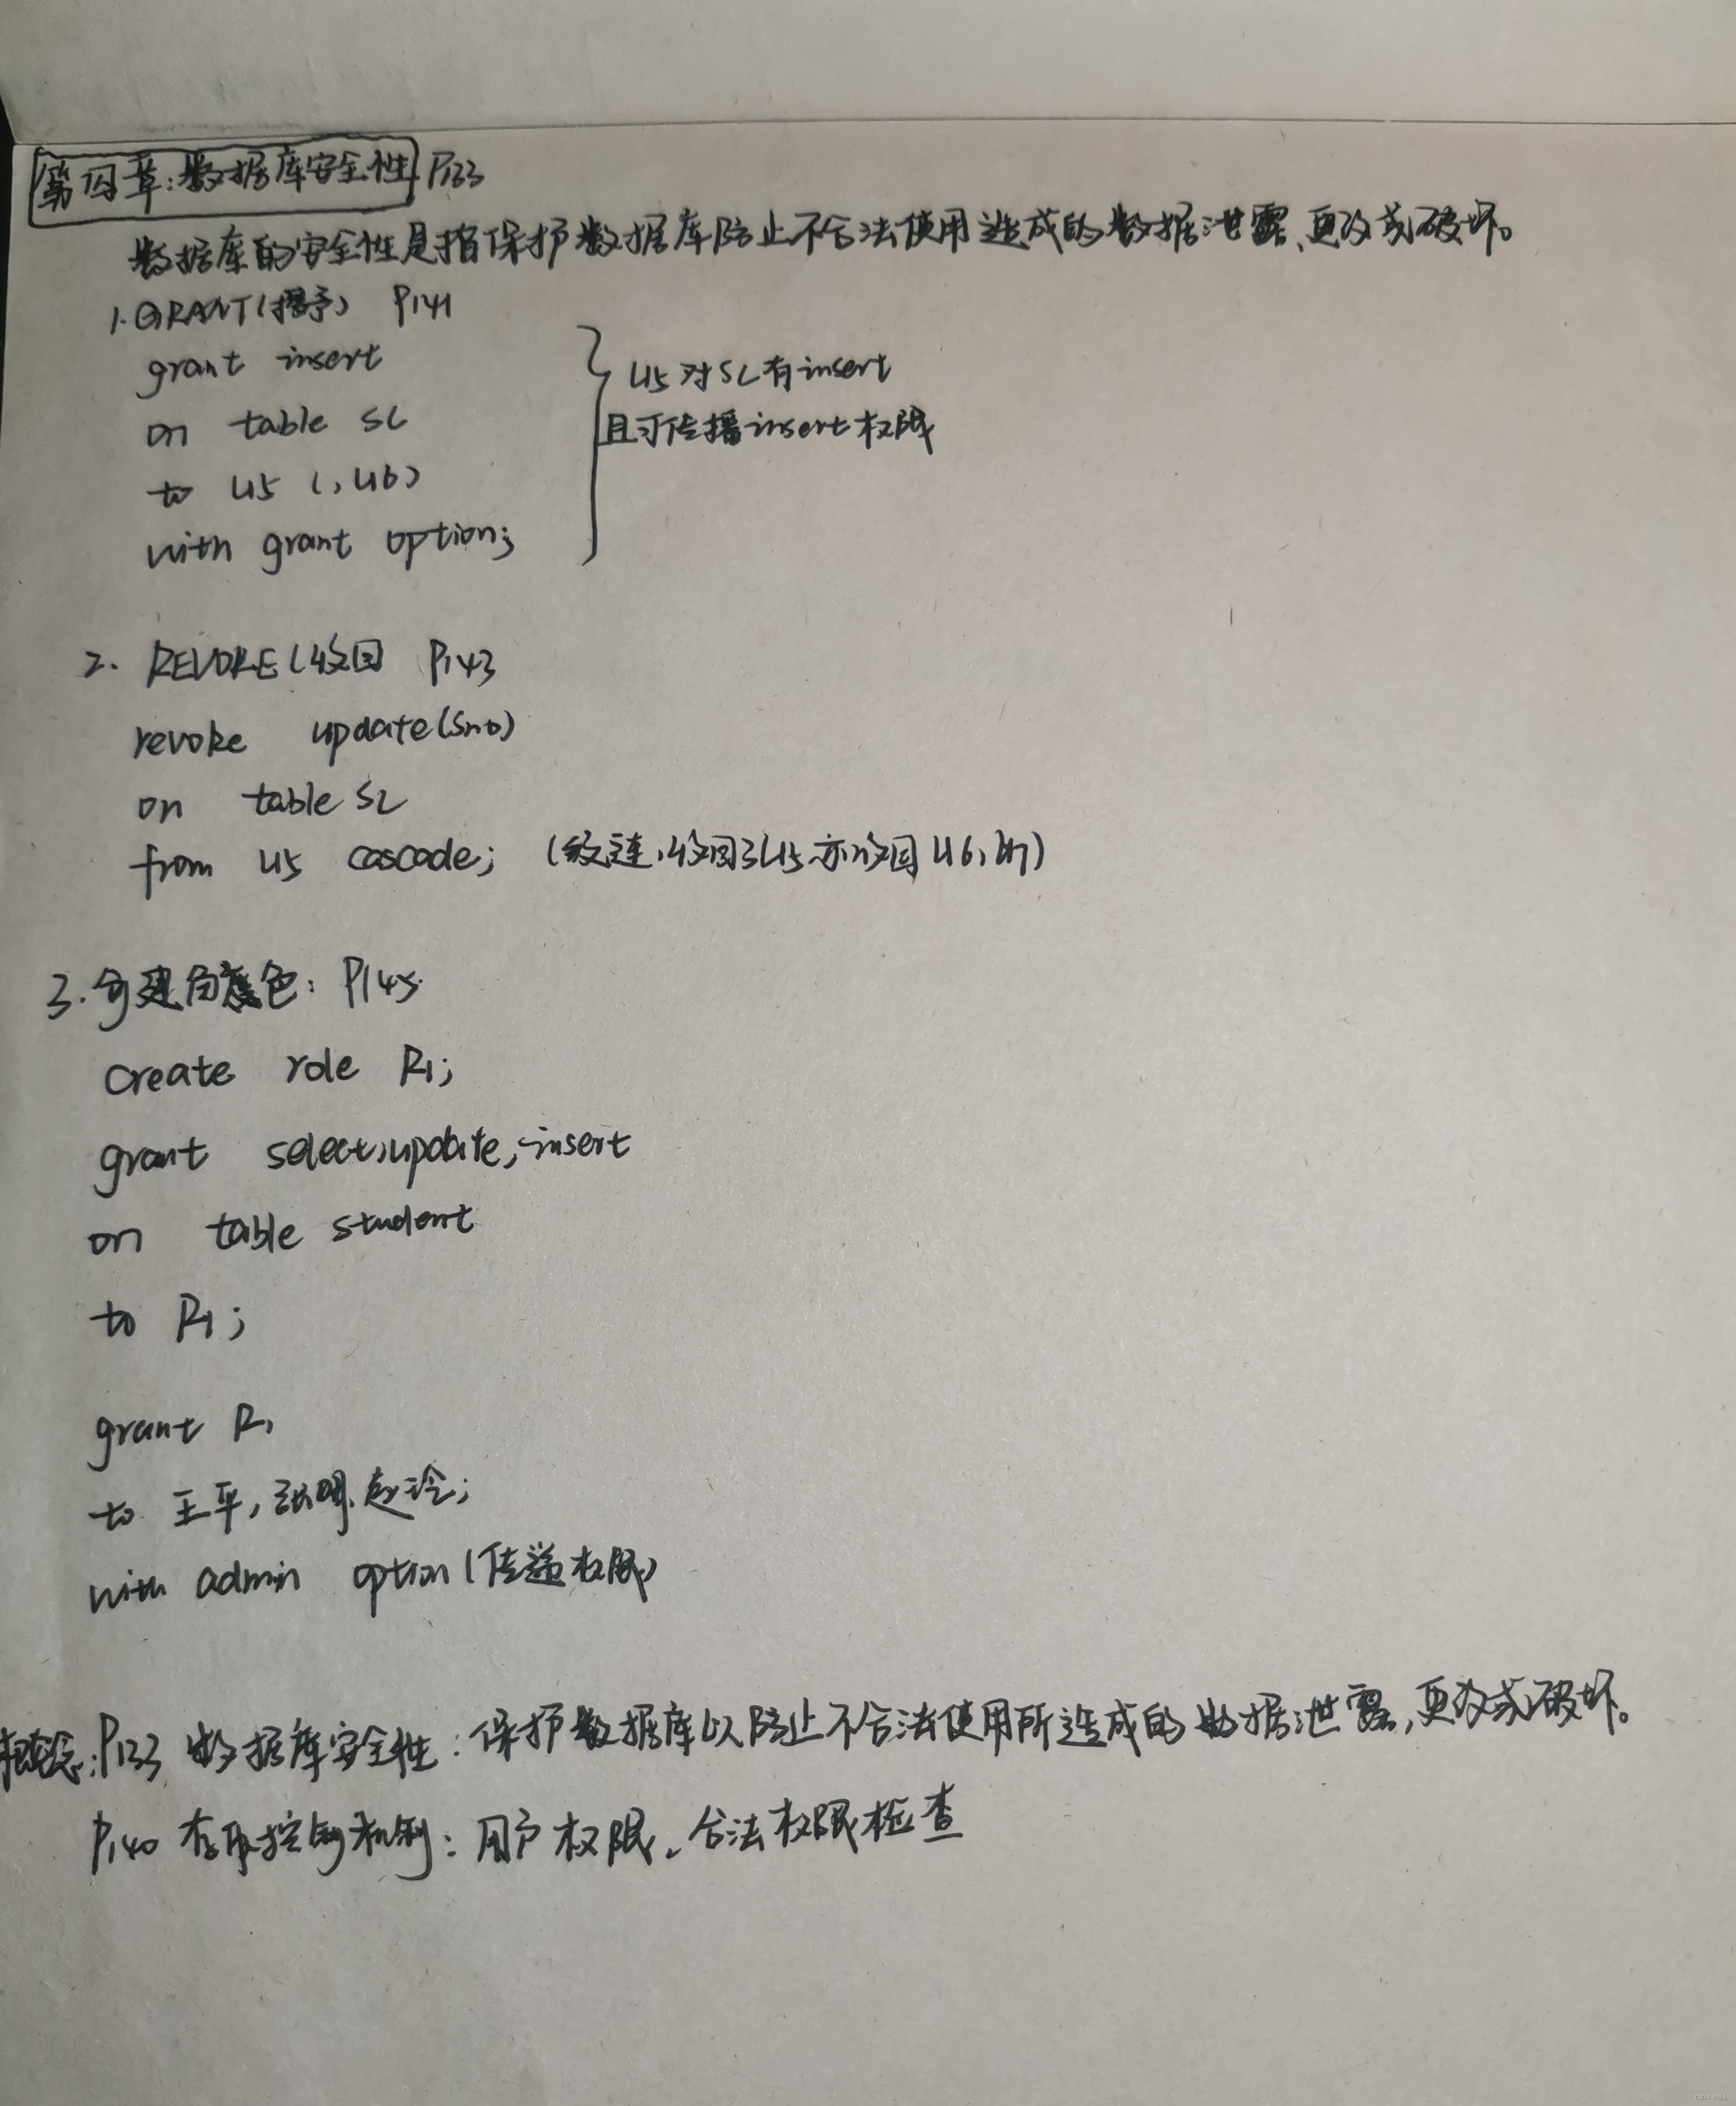 第四章:数据库安全性 P133
数据库的安全性是指保护数据库防止不合法使用造成的数据泄露、更改或破坏。
1.GRANT(授予) P141
grant insert
on table SC
to U5 (,U6)
with grant option;
U5对SC有insert
且可传播insert权限
2. REVOKE(收回 P143
revoke update(Sno)
on table SC
from U5 cascade; (级连,收回了U5亦收回U6,U7)
3.创建角色: P145
create role R1;
grant select,update,insert
on table student
to R1;
grant R1
to 王平,张明,赵玲;
with admin option(传递权限)
概念:P133 数据库安全性:保护数据库以防止不合法使用所造成的数据泄露,更改或破坏。
P140 存取控制机制:用户权限、合法权限检查